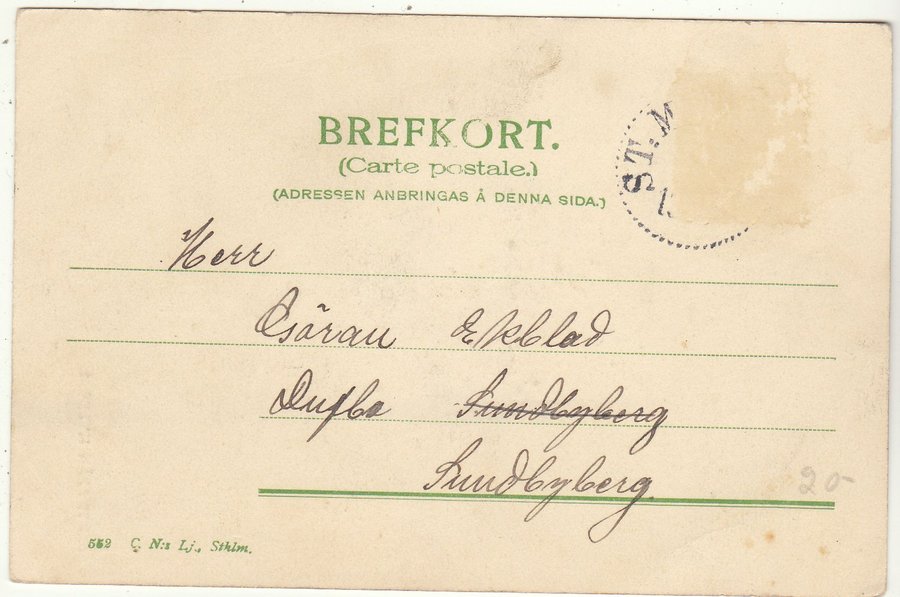 BREFKORT.
(Carte postale.)
(ADRESSEN ANBRINGAS Å DENNA SIDA.)
ST. M
Herr
Göran Ekblad
Dufbo Sundbyberg
Sundbyberg.
20-
552 C. N:s Lj., Sthlm.